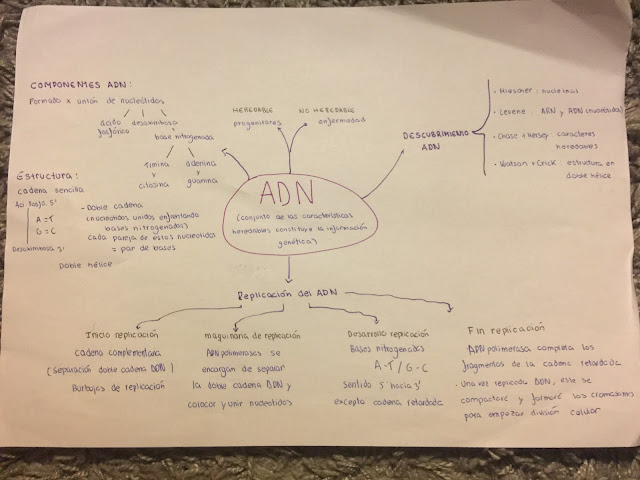 COMPONENTES ADN:
Formado x unión de nucleótidos
ácido fosfórico
desoxirribosa
base nitrogenada
timina y citosina
adenina y guanina
Estructura:
cadena sencilla
5'
A=T
G≡C
Desoxirribosa 3'
- Doble cadena
(nucleótidos unidos enfrentando
bases nitrogenadas)
cada pareja de estos nucleótidos
= par de bases
Doble hélice
HEREDABLE
progenitores
NO HEREDABLE
enfermedad
DESCUBRIMIENTO
ADN
· Miescher: nucleína
· Levene: ARN y ADN (nucleótidos)
· Chase + Hersey: caracteres
heredables
· Watson + Crick: estructura en
doble hélice
ADN
(conjunto de las características
heredables constituye la información
genética)
Replicación del ADN
Inicio replicación
cadena complementaria
(separación doble cadena ADN)
Burbujas de replicación
maquinaria de replicación
ADN polimerasas se
encargan de separar
la doble cadena ADN y
colocar y unir nucleótidos
Desarrollo replicación
Bases nitrogenadas
A-T / G-C
Sentido 5' hacia 3'
excepto cadena retardada
Fin replicación
ADN polimerasa completa los
fragmentos de la cadena retardada
· Una vez replicado ADN, este se
compactará y formará los cromosomas
para empezar división celular